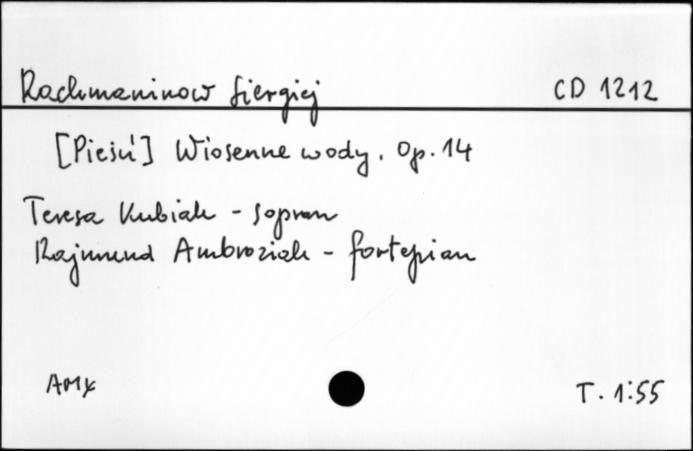 Rachmaninow Siergiej CD 1212
[Pieśń] Wiosenne wody. Op. 14
Teresa Kubiak - sopran
Rajmund Ambroziak - fortepian
AMX T. 1:55